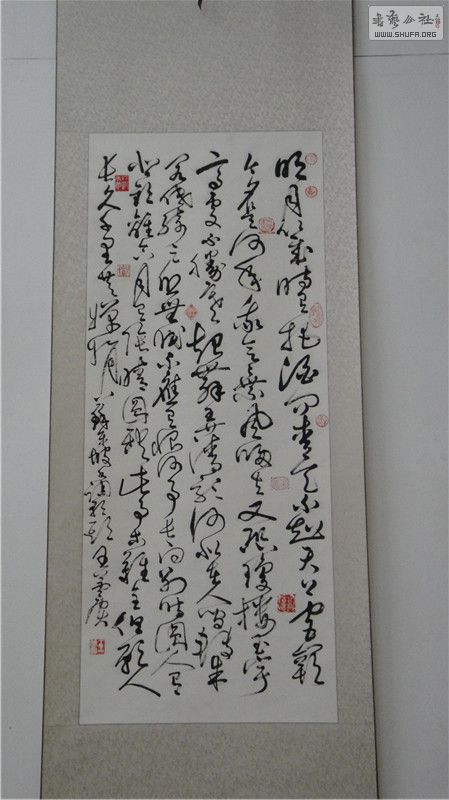 書藝公社
WWW.SHUFA.ORG
明月幾時有把酒問青天不知天上宮闕
今夕是何年我欲乘風歸去又恐瓊樓玉宇
高處不勝寒起舞弄清影何似在人間轉朱
閣低綺户照無眠不應有恨何事長向別時圓人有
悲歡離合月有陰晴圓缺此事古難全但願人
長久千里共嬋娟蘇東坡水調歌頭